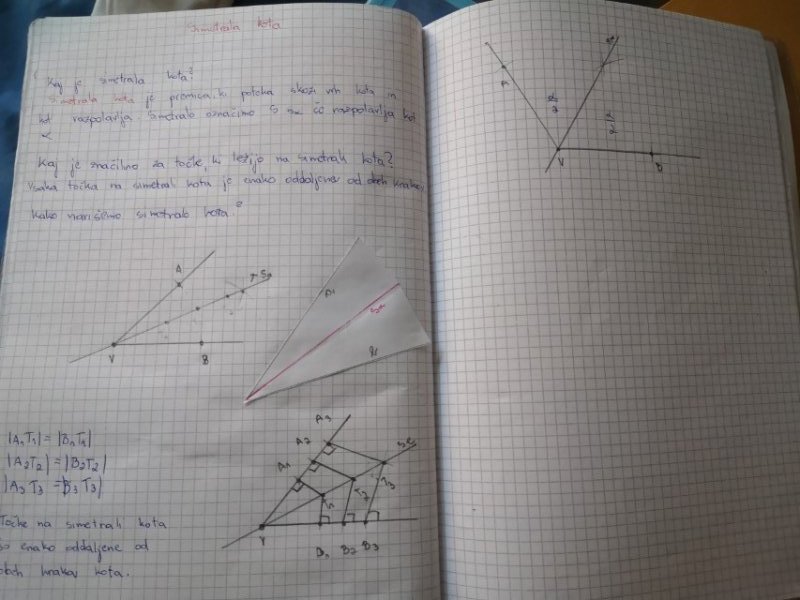 Simetrala kota
Kaj je simetrala kota?
Simetrala kota je premica, ki poteka skozi vrh kota in
kot razpolavlja. Simetralo označimo s sα če razpolavlja kot
α
Kaj je značilno za točke, ki ležijo na simetrali kota?
Vsaka točka na simetrali kota je enako oddaljena od obeh krakov
Kako narišemo simetralo kota?
A
sα
V
B
A1
sα
B1
|A1T1| = |B1T1|
|A2T2| = |B2T2|
|A3T3| = |B3T3|
Točke na simetrali kota
so enako oddaljene od
obeh krakov kota.
A3
A2
A1
sα
T1
T2
T3
V
B1 B2 B3
A
sα
α/2
α/2
V
B